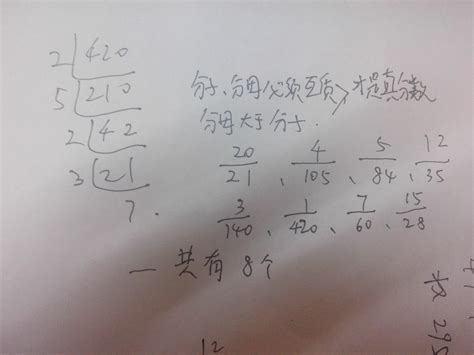 2 420
5 210
2 42
3 21
7.
分子、分母必须互质 才是真分数
分母大于分子.
20/21、4/105、5/84、12/35
3/140、1/420、7/60、15/28
一共有 8个
12